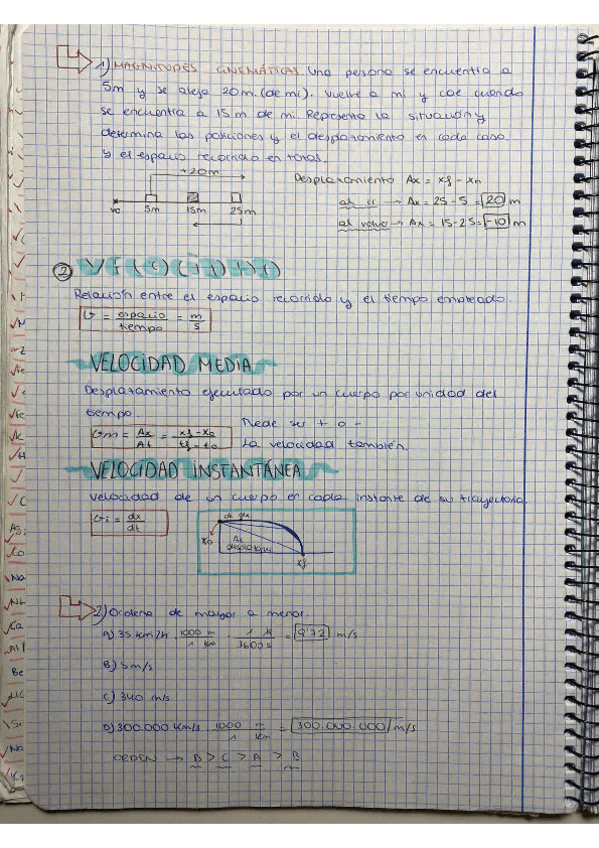 1) MAGNITUDES CINEMÁTICAS. Una persona se encuentra a
5m y se aleja 20m. (de mi). Vuelve a mi y cae cuando
se encuentra a 15 m de mi. Representa la situación y
determina las posiciones y el desplazamiento en cada caso.
y el espacio recorrido en total.
+20m
Desplazamiento Δx = xf - x0
al ir → Δx = 25 - 5 = 20 m
5m 15m 25m
al volver → Δx = 15 - 25 = -10 m
2 VELOCIDAD
Relación entre el espacio recorrido y el tiempo empleado.
v = espacio/tiempo = m/s
VELOCIDAD MEDIA
Desplazamiento ejecutado por un cuerpo por unidad del
tiempo.
Puede ser + o -
vm = Δx/Δt = xf-x0/tf-t0
La velocidad también.
VELOCIDAD INSTANTÁNEA
velocidad de un cuerpo en cada instante de su trayectoria
vi = dx/dt
x0
xf
2) Ordena de mayor a menor.
A) 35 km/h · 1000 m/1 km · 1 h/3600 s = 9'72 m/s
B) 5 m/s
C) 340 m/s
D) 300.000 km/s · 1000 m/1 km = 300.000.000 m/s
ORDEN → D > C > A > B